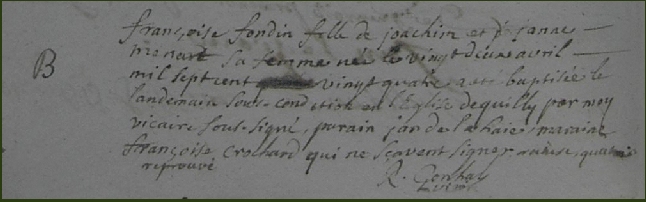 B
françoise fondin fille de joachim et de janne
menard sa femme née le vingt deux avril
mil sept cent vingt quatre a été baptisée le
landemain sous condition en l'Eglise de quilly par moy
vicaire sous-signé, parain jan de la haie, maraine
françoise Crochard qui ne sçavent signer
reprouvé
R.
vicaire